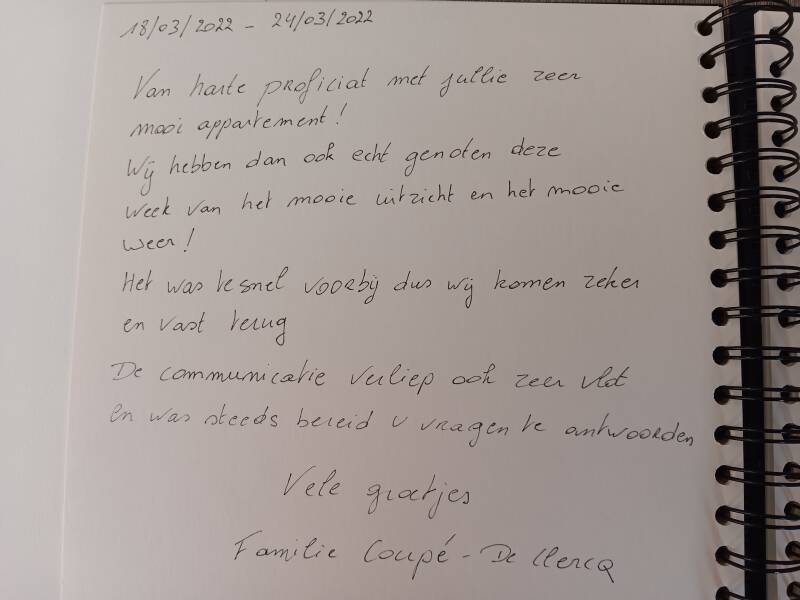 18/03/2022 - 24/03/2022
Van harte proficiat met jullie zeer
mooi appartement!
Wij hebben dan ook echt genoten deze
week van het mooie uitzicht en het mooie
weer!
Het was te snel voorbij dus wij komen zeker
en vast terug
De communicatie verliep ook zeer vlot
en was steeds bereid u vragen te antwoorden
Vele groetjes
Familie Coupé - De Clercq